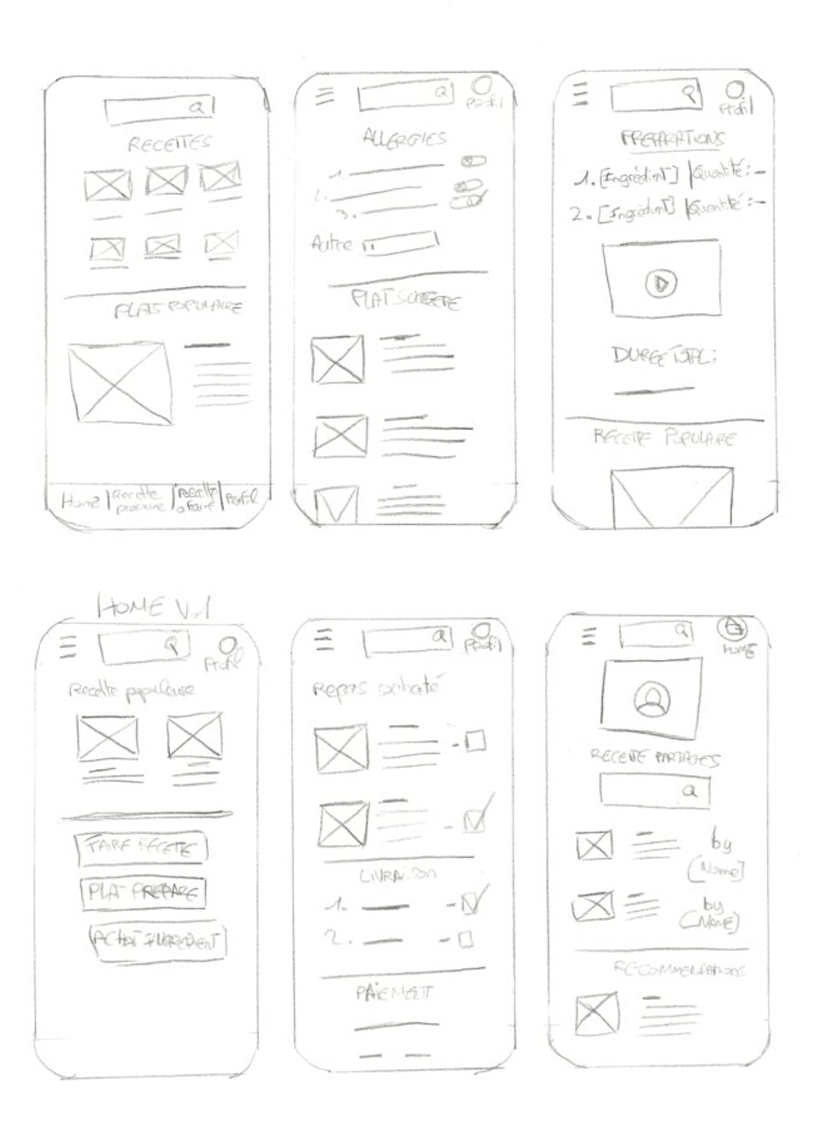 RECETTES
PLATS POPULAIRE
Home | Recette | Recette | Profil
à faire
Profil
ALLERGIES
1.
2.
3.
Autre :
PLAT SUGGÉRÉ
Profil
PREPARATIONS
1. [Ingrédient] | Quantité : -
2. [Ingrédient] | Quantité : -
DUREE TOTAL :
RECETTE POPULAIRE
HOME V.1
Profil
Recette populaire
FAIRE RECETTE
PLAT PREPARE
ACHAT INGREDIENT
Profil
Repas souhaité
LIVRAISON
1.
2.
PAIEMENT
HOME
RECETTE PARTAGES
by
[Name]
by
[Name]
RECOMMENDATIONS